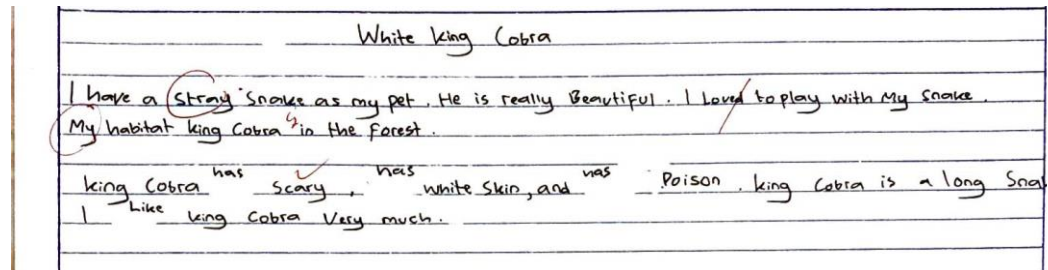 White king Cobra
I have a stray snake as my pet. He is really Beautiful. I Loved to play with My snake.
My habitat king Cobra is in the forest.
king Cobra has scary, has white skin, and has Poison. king Cobra is a long Sna
I Like king Cobra Very much.